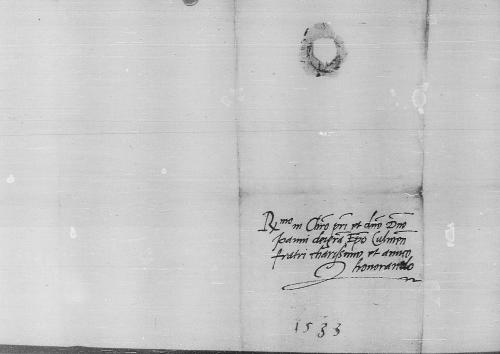 R.mo in Chro pri et dno Dno
Joanni dei gra Epo Culmen
fratri charissimo et amico
honorando
1533